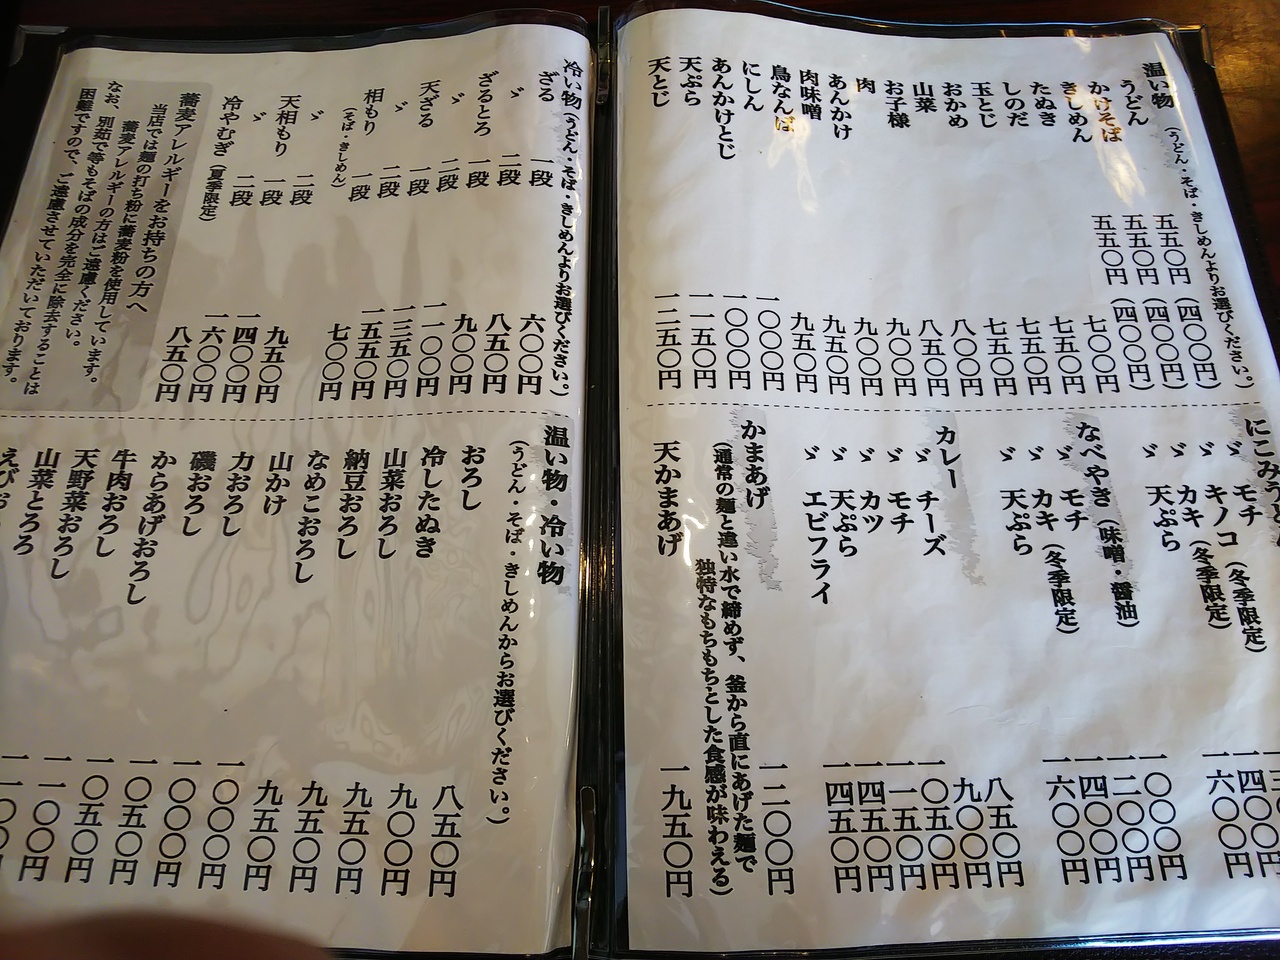 温い物 (うどん・そば・きしめんよりお選びください。)
うどん 五五〇円(四〇〇円)
かけそば 五五〇円(四〇〇円)
きしめん 五五〇円(四〇〇円)
たぬき 七〇〇円
しのだ 七五〇円
玉とじ 七五〇円
おかめ 七五〇円
山菜 八〇〇円
お子様 八五〇円
肉 九〇〇円
あんかけ 九〇〇円
肉味噌 九五〇円
鳥なんば 九五〇円
にしん 一〇〇〇円
あんかけとじ 一〇〇〇円
天ぷら 一一五〇円
天とじ 一二五〇円
にこみうどん
〃 モチ
〃 キノコ(冬季限定)
〃 カキ(冬季限定) 一四〇〇円
〃 天ぷら 一六〇〇円
なべやき(味噌・醤油) 一〇〇〇円
〃 モチ 一二〇〇円
〃 カキ(冬季限定) 一四〇〇円
〃 天ぷら 一六〇〇円
カレー 八五〇円
〃 チーズ 九〇〇円
〃 モチ 一〇五〇円
〃 カツ 一一五〇円
〃 天ぷら 一四五〇円
〃 エビフライ 一四五〇円
かまあげ 一二〇〇円
(通常の麺と違い水で締めず、釜から直にあげた麺で
独特なもちもちとした食感が味わえる)
天かまあげ 一九五〇円
冷い物(うどん・そば・きしめんよりお選びください。)
ざる 一段 六〇〇円
〃 二段 八五〇円
ざるとろ 一段 九〇〇円
〃 二段 一一〇〇円
天ざる 一段 一三五〇円
〃 二段 一五五〇円
相もり 一段 七〇〇円
(そば・きしめん)
〃 二段 九五〇円
天相もり 一段 一四〇〇円
〃 二段 一六〇〇円
冷やむぎ(夏季限定) 八五〇円
蕎麦アレルギーをお持ちの方へ
当店では麺の打ち粉に蕎麦粉を使用しています。
蕎麦アレルギーの方はご遠慮ください。
なお、別茹で等もそばの成分を完全に除去することは
困難ですので、ご遠慮させていただいております。
温い物・冷い物
(うどん・そば・きしめんからお選びください。)
おろし 八五〇円
冷したぬき 九〇〇円
山菜おろし 九五〇円
納豆おろし 九五〇円
なめこおろし 九五〇円
山かけ 一〇〇〇円
力おろし 一〇〇〇円
磯おろし 一〇五〇円
からあげおろし 一〇五〇円
牛肉おろし 一一〇〇円
天野菜おろし
山菜とろろ